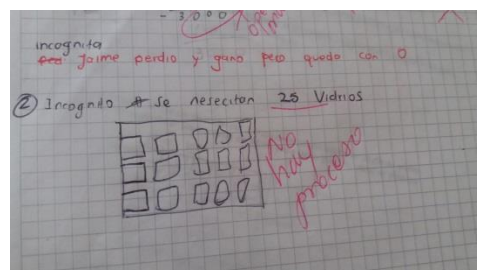 - 3000
incognita
Jaime perdio y gano pero quedo con 0
② Incognito se nesecitan 25 Vidrios
NO
hay
proceso